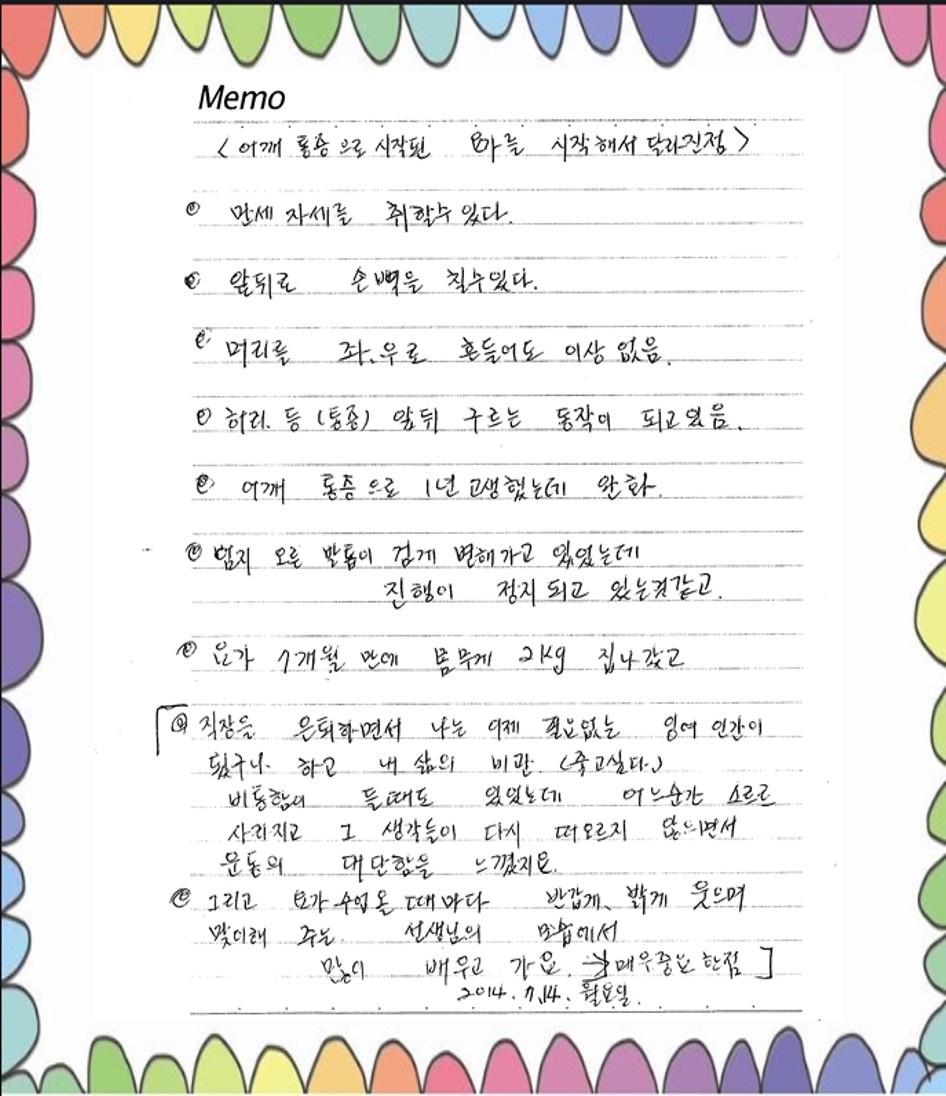 Memo
< 어깨 통증으로 시작된 요가를 시작해서 달라진점 >
만세 자세를 취할수있다.
앞뒤로 손뼉을 칠수있다.
머리를 좌.우로 흔들어도 이상 없음.
허리. 등 (통증) 앞뒤 구르는 동작이 되고있음.
어깨 통증으로 1년 고생했는데 완화.
엄지 오른 발톱이 검게 변해가고 있었는데
진행이 정지되고 있는것같고.
요가 1개월 만에 몸무게 2kg 집나갔고
직장을 은퇴하면서 나는 이제 필요없는 잉여 인간이
됬구나. 하고 내 삶의 비관. (죽고싶다.)
비통함이 들때도 있었는데 어느순간 스르르
사라지고 그 생각들이 다시 떠오르지 않으면서
운동의 대단함을 느꼈지요.
그리고 요가수업올 때마다 반갑게, 밝게 웃으며
맞이해 주는 선생님의 모습에서
많이 배우고 가요. → 매우중요 한점
2014. 7.14. 월요일.